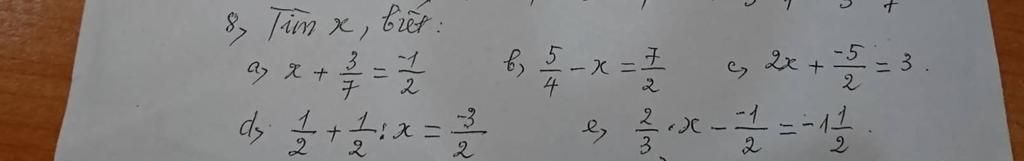 8, Tìm x, biết:
a, x + 3/7 = -1/2 b, 5/4 - x = 7/2 c, 2x + -5/2 = 3.
d, 1/2 + 1/2 : x = -3/2 e, 2/3 · x - -1/2 = -1 1/2.